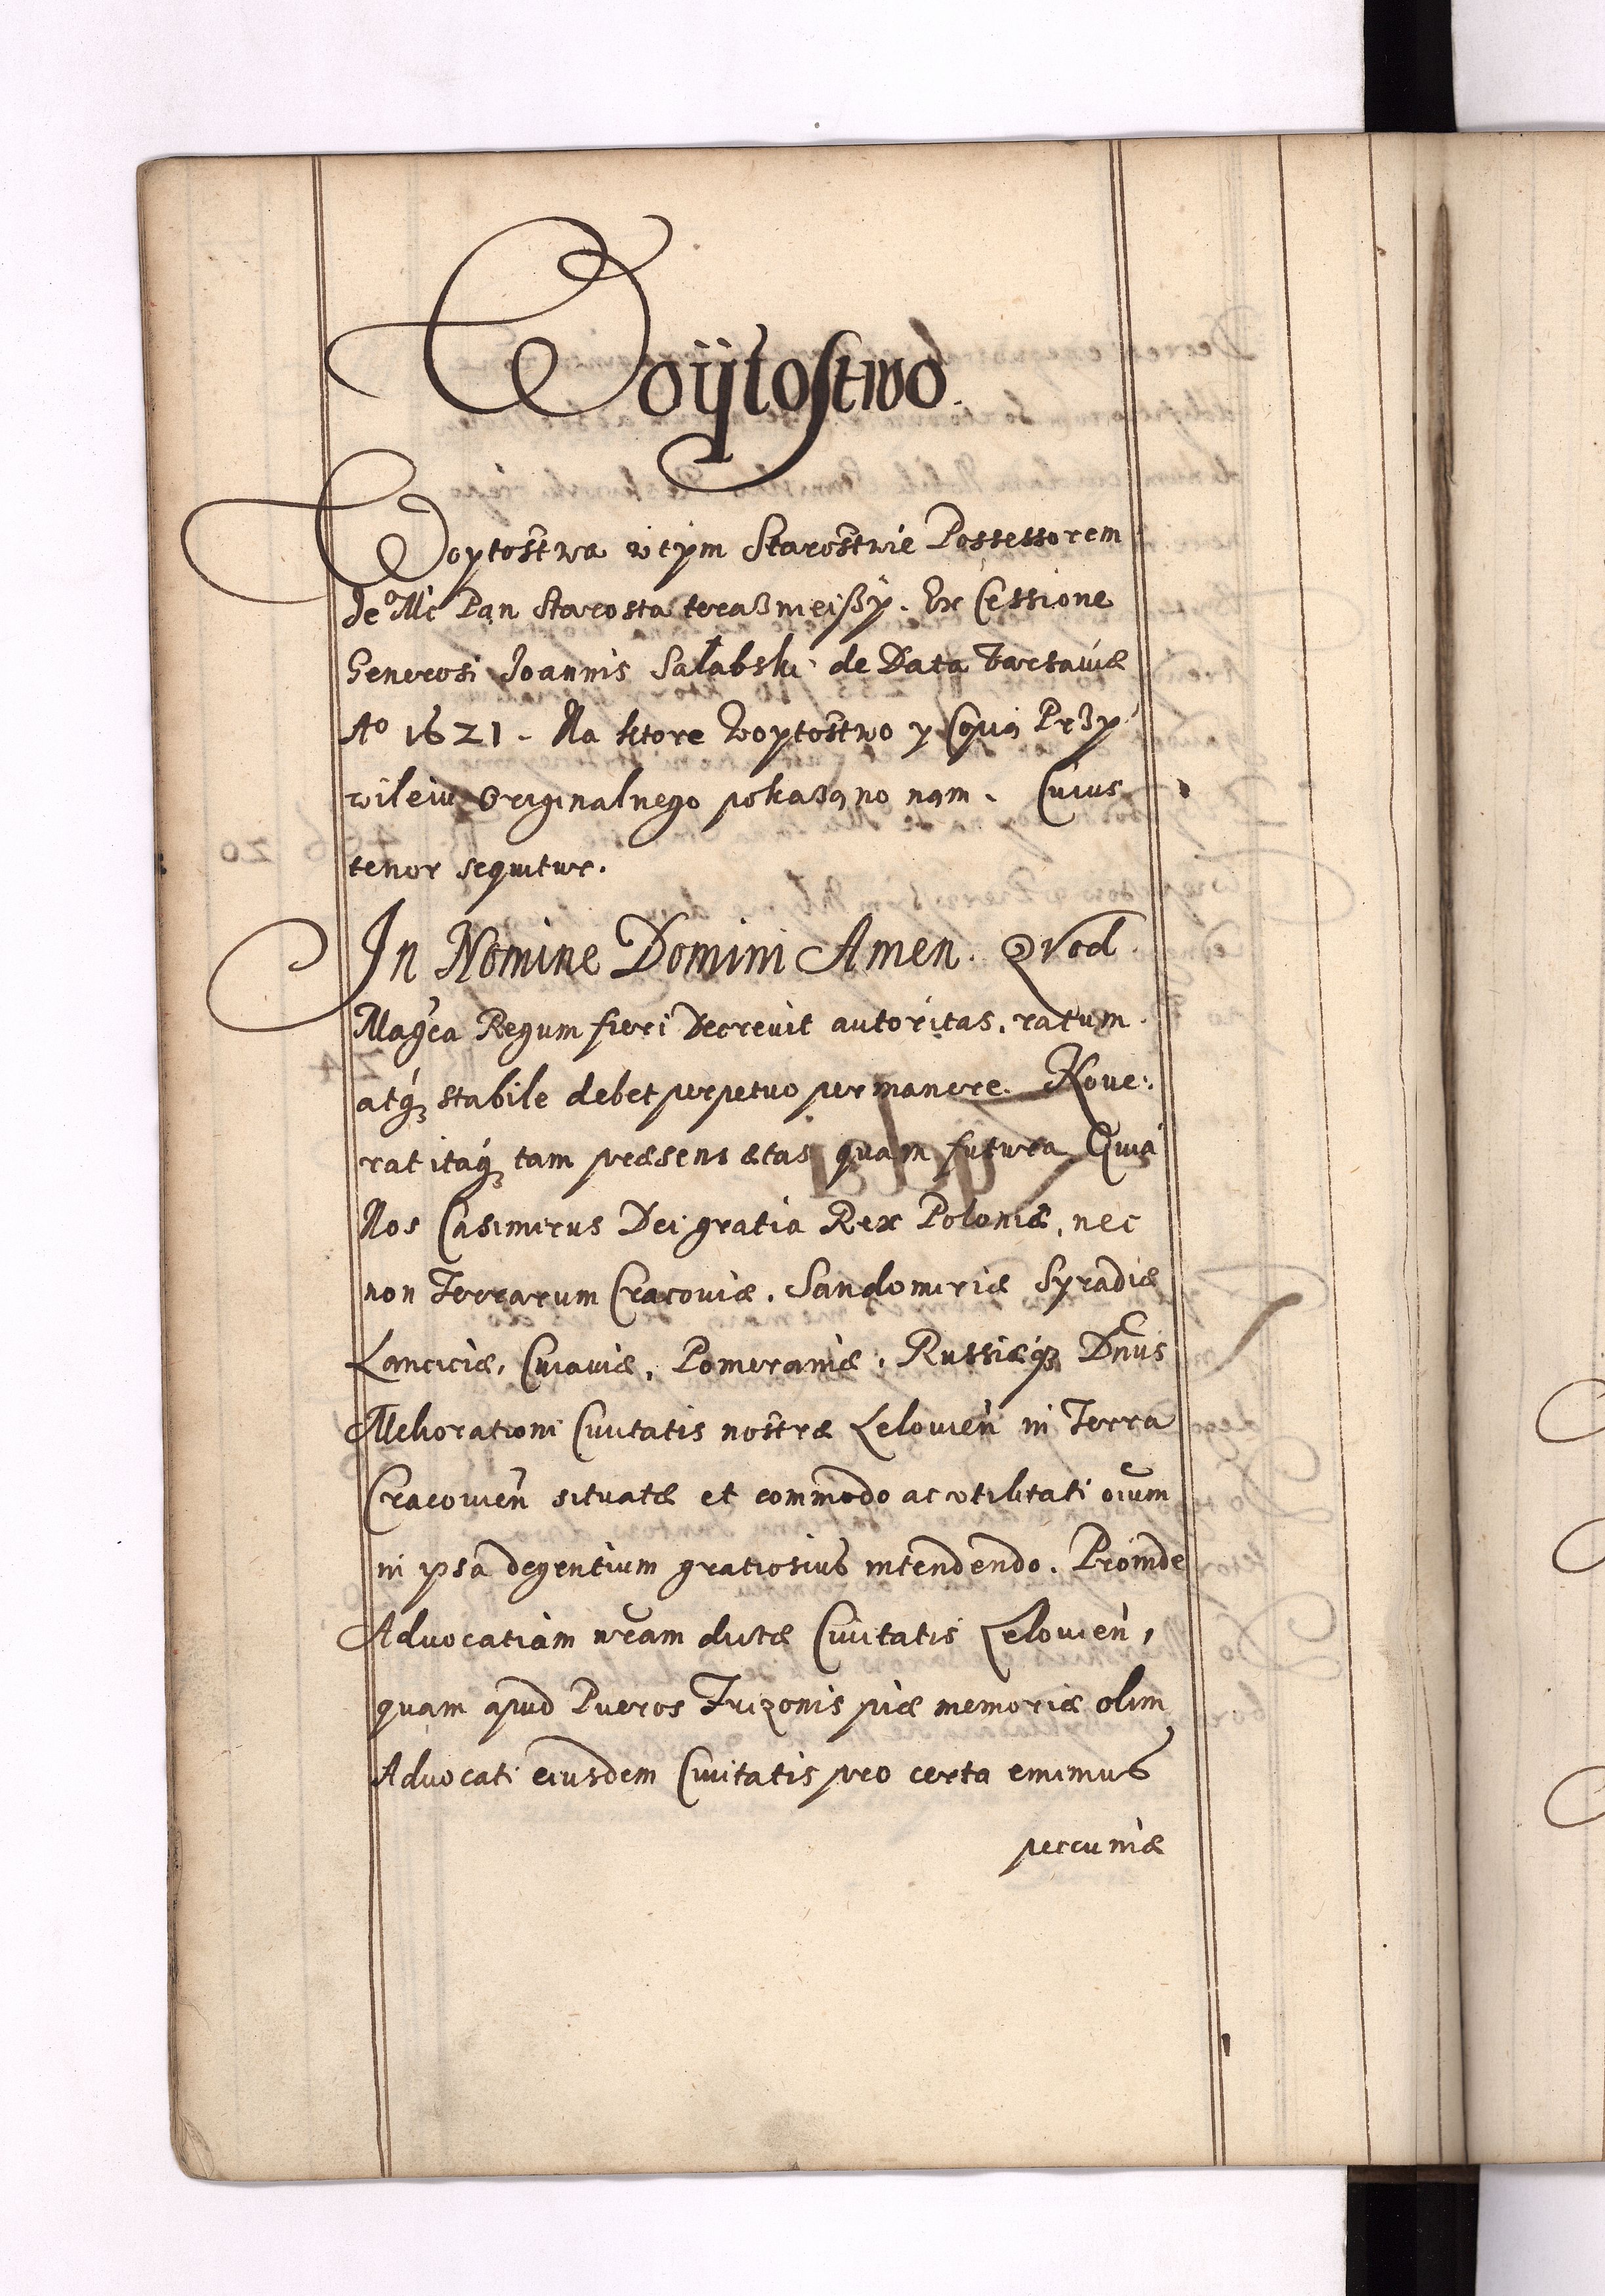 Woÿtostwo.
Woytostwa w tym Starostwie Possessorem
Je͠o Mć Pan Starosta teraʒnieißy. Ex Cessione
Generosi Joannis Sałabski de Data Varsaviæ
Aº 1621. Na ktore Woytostwo y Copią Prʒy
wileiu Originalnego pokaʒano nam. Cuius
tenor sequitur.
In Nomine Domini Amen. Qvod
Mag͠ca Regum fieri Decrevit autoritas, ratum
atq́ʒ stabile debet perpetuo permanere. Nove:
rat itaq́ʒ tam præsens ætas quam futura Quia
Nos Casimirus Dei gratia Rex Poloniæ, nec
non Terrarum Cracoviæ, Sandomiriæ Syradiæ
Lanciciæ, Cuiaviæ, Pomeraniæ, Russiæq́ʒ Dn͠us
Meliorationi Civitatis nostræ Lelovien̄ in Terra
Cracovien̄ situatæ et commodo ac vtilitati oi͠um
in ipsa degentium gratiosius intendendo. Proinde
Advocatiam nr͠am dictæ Civitatis Lelovien̄,
quam apud Pueros Frizonis piæ memoriæ olim
Advocati eiusdem Civitatis pro certa emimus
pecuniæ